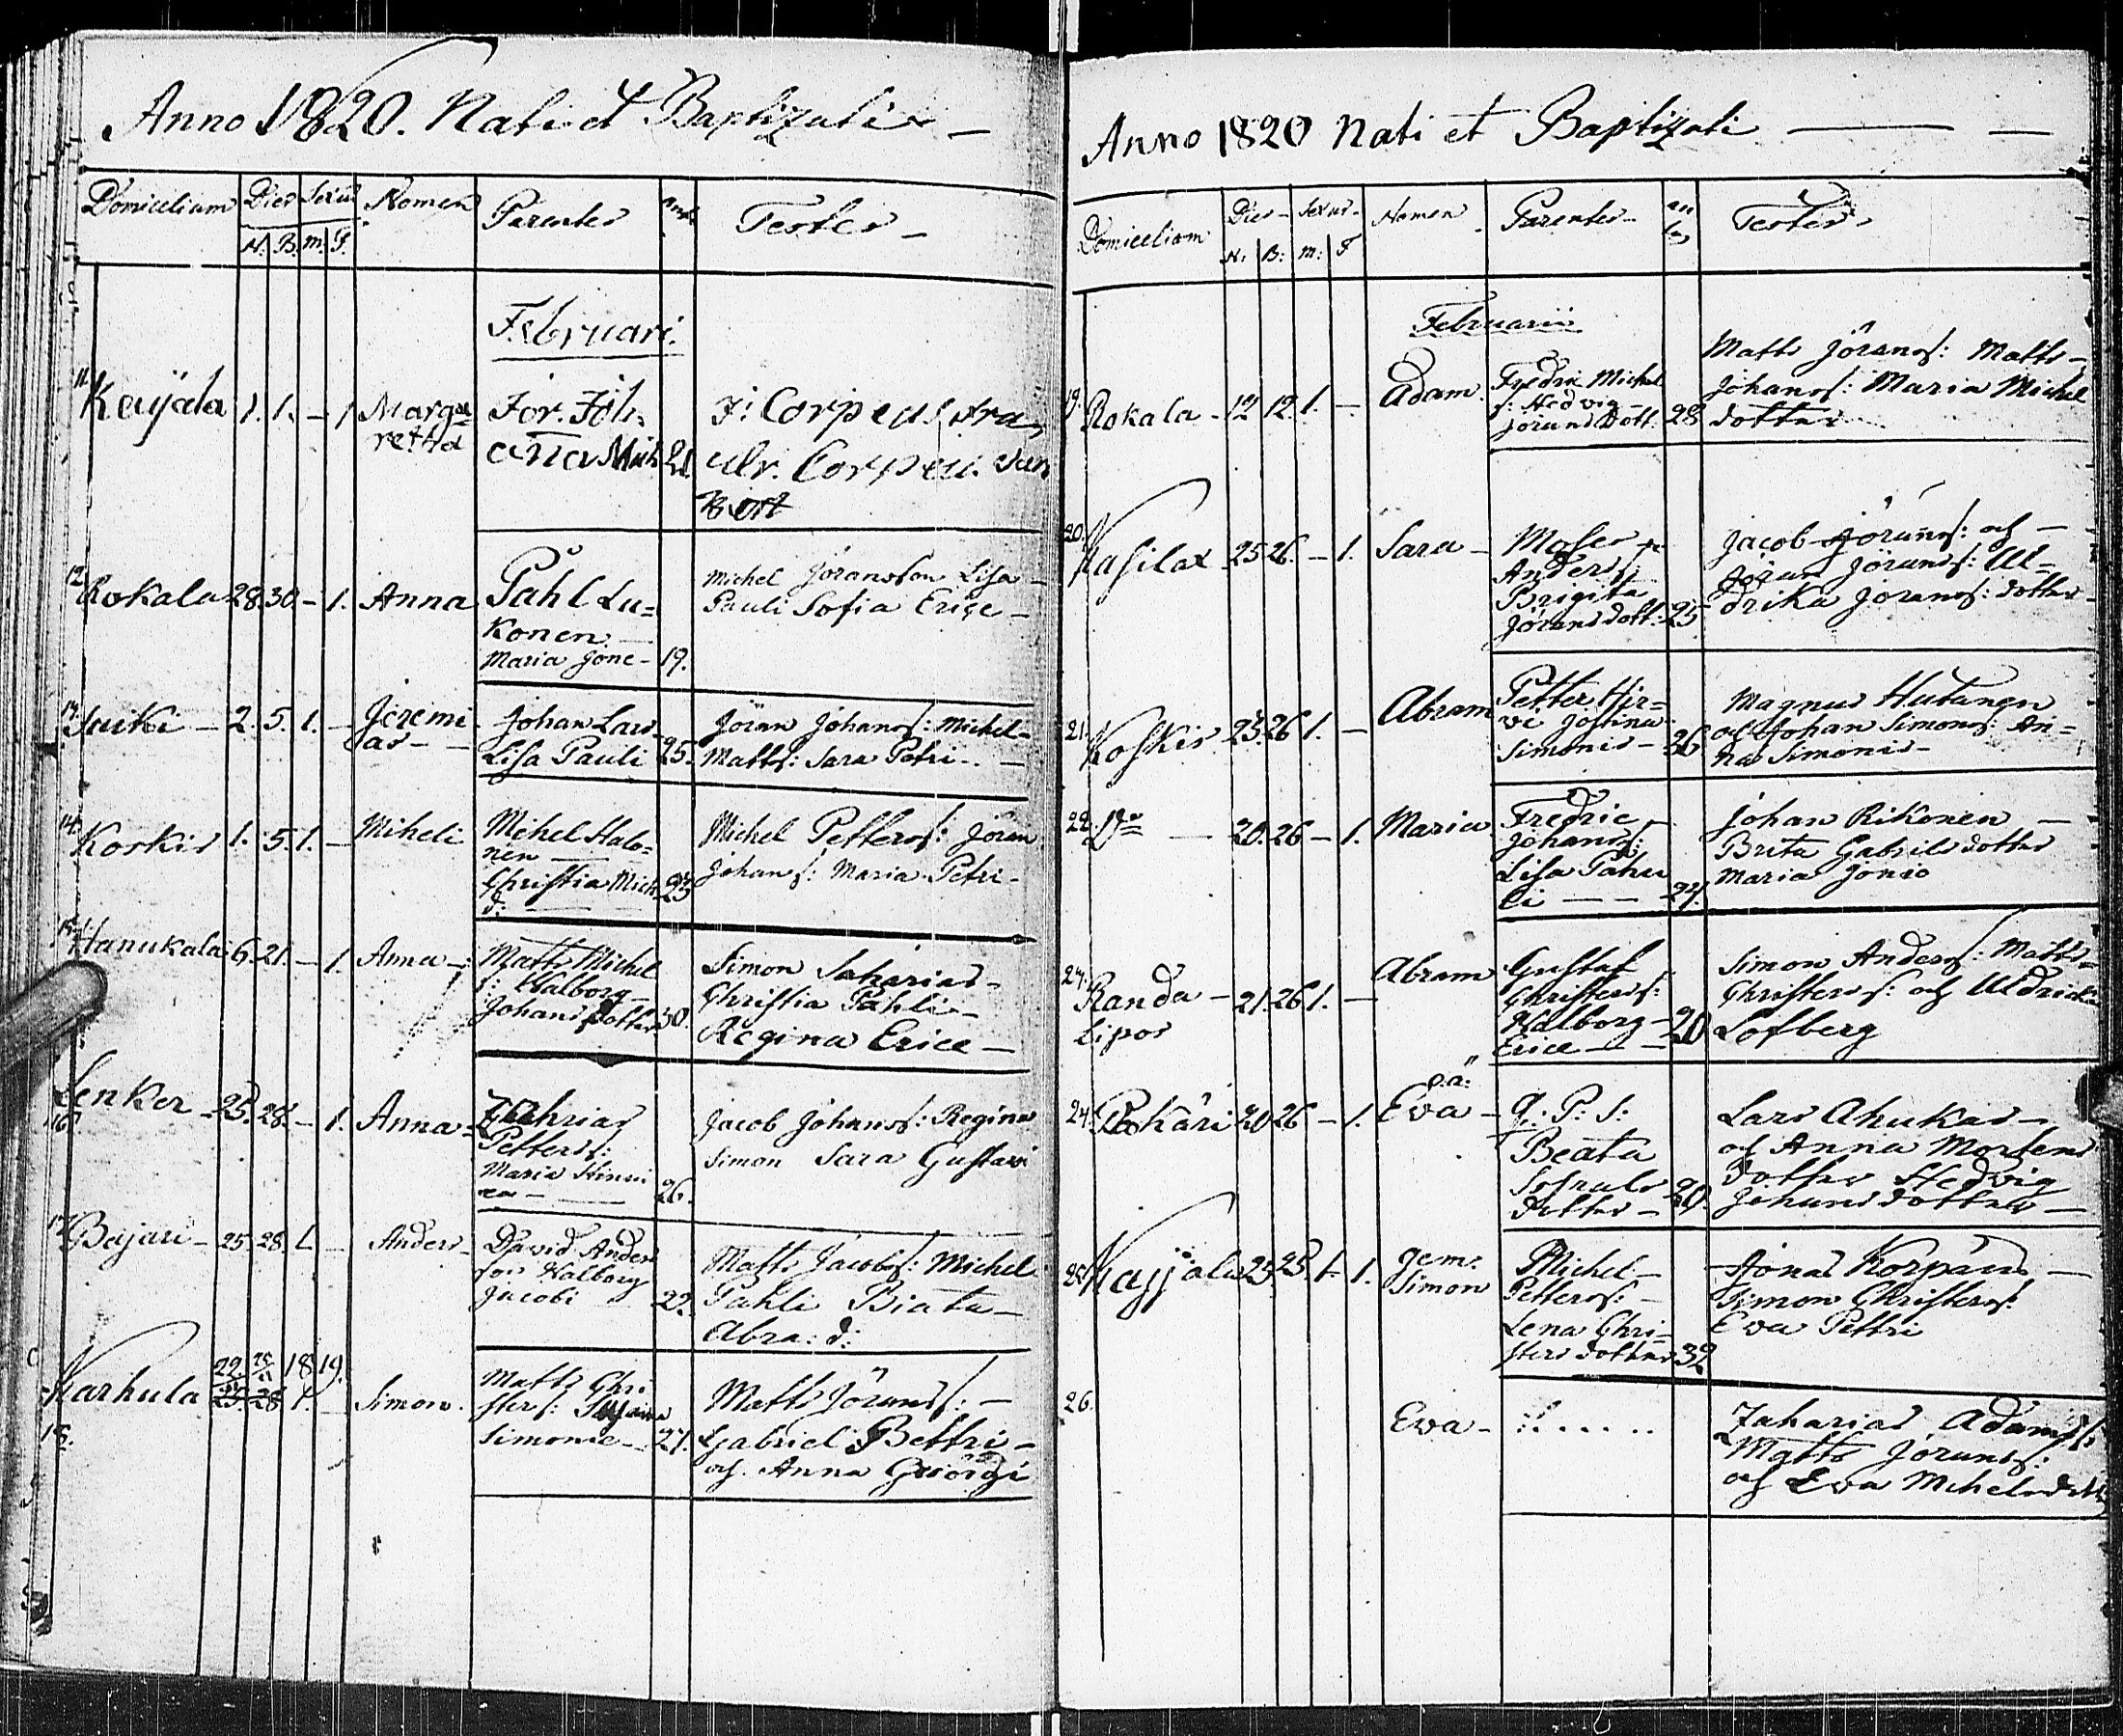 Anno 1820. Nati et Baptizati –
Domicilium Dies Sexus Nomen Parentes Testes –
N. B. m. F.
Februari.
11. Kaijala 1. 1. – 1 Marga
retta
Jör. Joh.
ana Mich 21.
J: Corpeus, fra
ulr. Corpeu.
12. Rokala 28. 30. – 1. Anna
Påhl Lu=
konen –
Maria Jone – 19.
Michel Jöransson Lisa –
Pauli Sofia Erice –
13. Suiki – 2. 5. 1. – Jeremi
as –
Johan Lars
Lisa Pauli 25.
Jöran Johans: Michel –
Matts: Sara Petri –
14. Koskis 1. 5. 1. – Miheli
Mihel Halo=
nen –
Christia Mich 23
d:
Michel Petters: Jöran
Johans: Maria Petri –
15. Hanukala 6. 21. – 1. Anna –
Matts Michel
s: Walborg –
Johans dotter 30.
Simon Saharias –
Christia Påhli –
Regina Erice –
16. Lenker 25. 28. – 1. Anna –
Zachrias
Petters:
Maria Hinri
ca – 26.
Jacob Johans: Regina
Simon Sara Gustavi
17. Bajari – 25. 28. 1. – Anders –
David Anders
son Walborg
Jacobi 22.
Matts Jacobs: Michel
Påhli Biata –
Abra: d:
1819.
18. Karhula 25. 28 1. – Simon.
Matts Chri
sters: Susana
Simonie – 27.
Matts Jörans: –
Gabriel Pettri –
och Anna Georgi
Anno 1820 Nati et Baptizati –
Domicilium Dies – Sexus – Nomen Parentes – Testes –
N: B: m: F
Februarii
19. Rokala – 12 12. 1. – Adam.
Fredric Michel
s: Hedvig –
Jörans Dott. 28
Matts Jörans: Matts –
Johans: Maria Michel
dotter
20. Kasilax 25 26. – 1. Sara –
Moses –
Anders:
Brigita
Jörans dott: 25
Jacob Jörans: och –
Jöran Jörans: Ul=
drika Jörans: dotter –
21. Koskis 23. 26 1. – Abram
Petter Hir=
vi Jostina
Simonis – 36
Magnus Hutanen
och Johan Simons: An=
na Simonis –
22. Do – 20. 26 – 1. Maria
Fredric –
Johans:
Lisa Påhu
li – – 27.
Johan Rikonen –
Brita Gabriels dotter
Maria Jonis
Randa – 21. 26 1. – Abram
lipos
Gustaf
Christers:
Walborg –
Erice – – 20
Simon Anders: Matts –
Christers: och Uldrica
Lofberg
24. Pokäri 20 26 – 1. Eva –
o.ä:
q: P: s:
Beata
dotter – 20.
Lars Ahukas –
och Anna Mortens
dotter Hedvig
Johans dotter –
25. Kaijala 25. 25. 1. 1. gem:
Simon
Michel –
Petters: –
Lena Chri=
sters dotter 32
Jonas Korpäus –
Simon Christers:
Eva Pettri
26. Ewa –
Zaharias Adams:
Matts Jörans:
och Eva Mihels dott